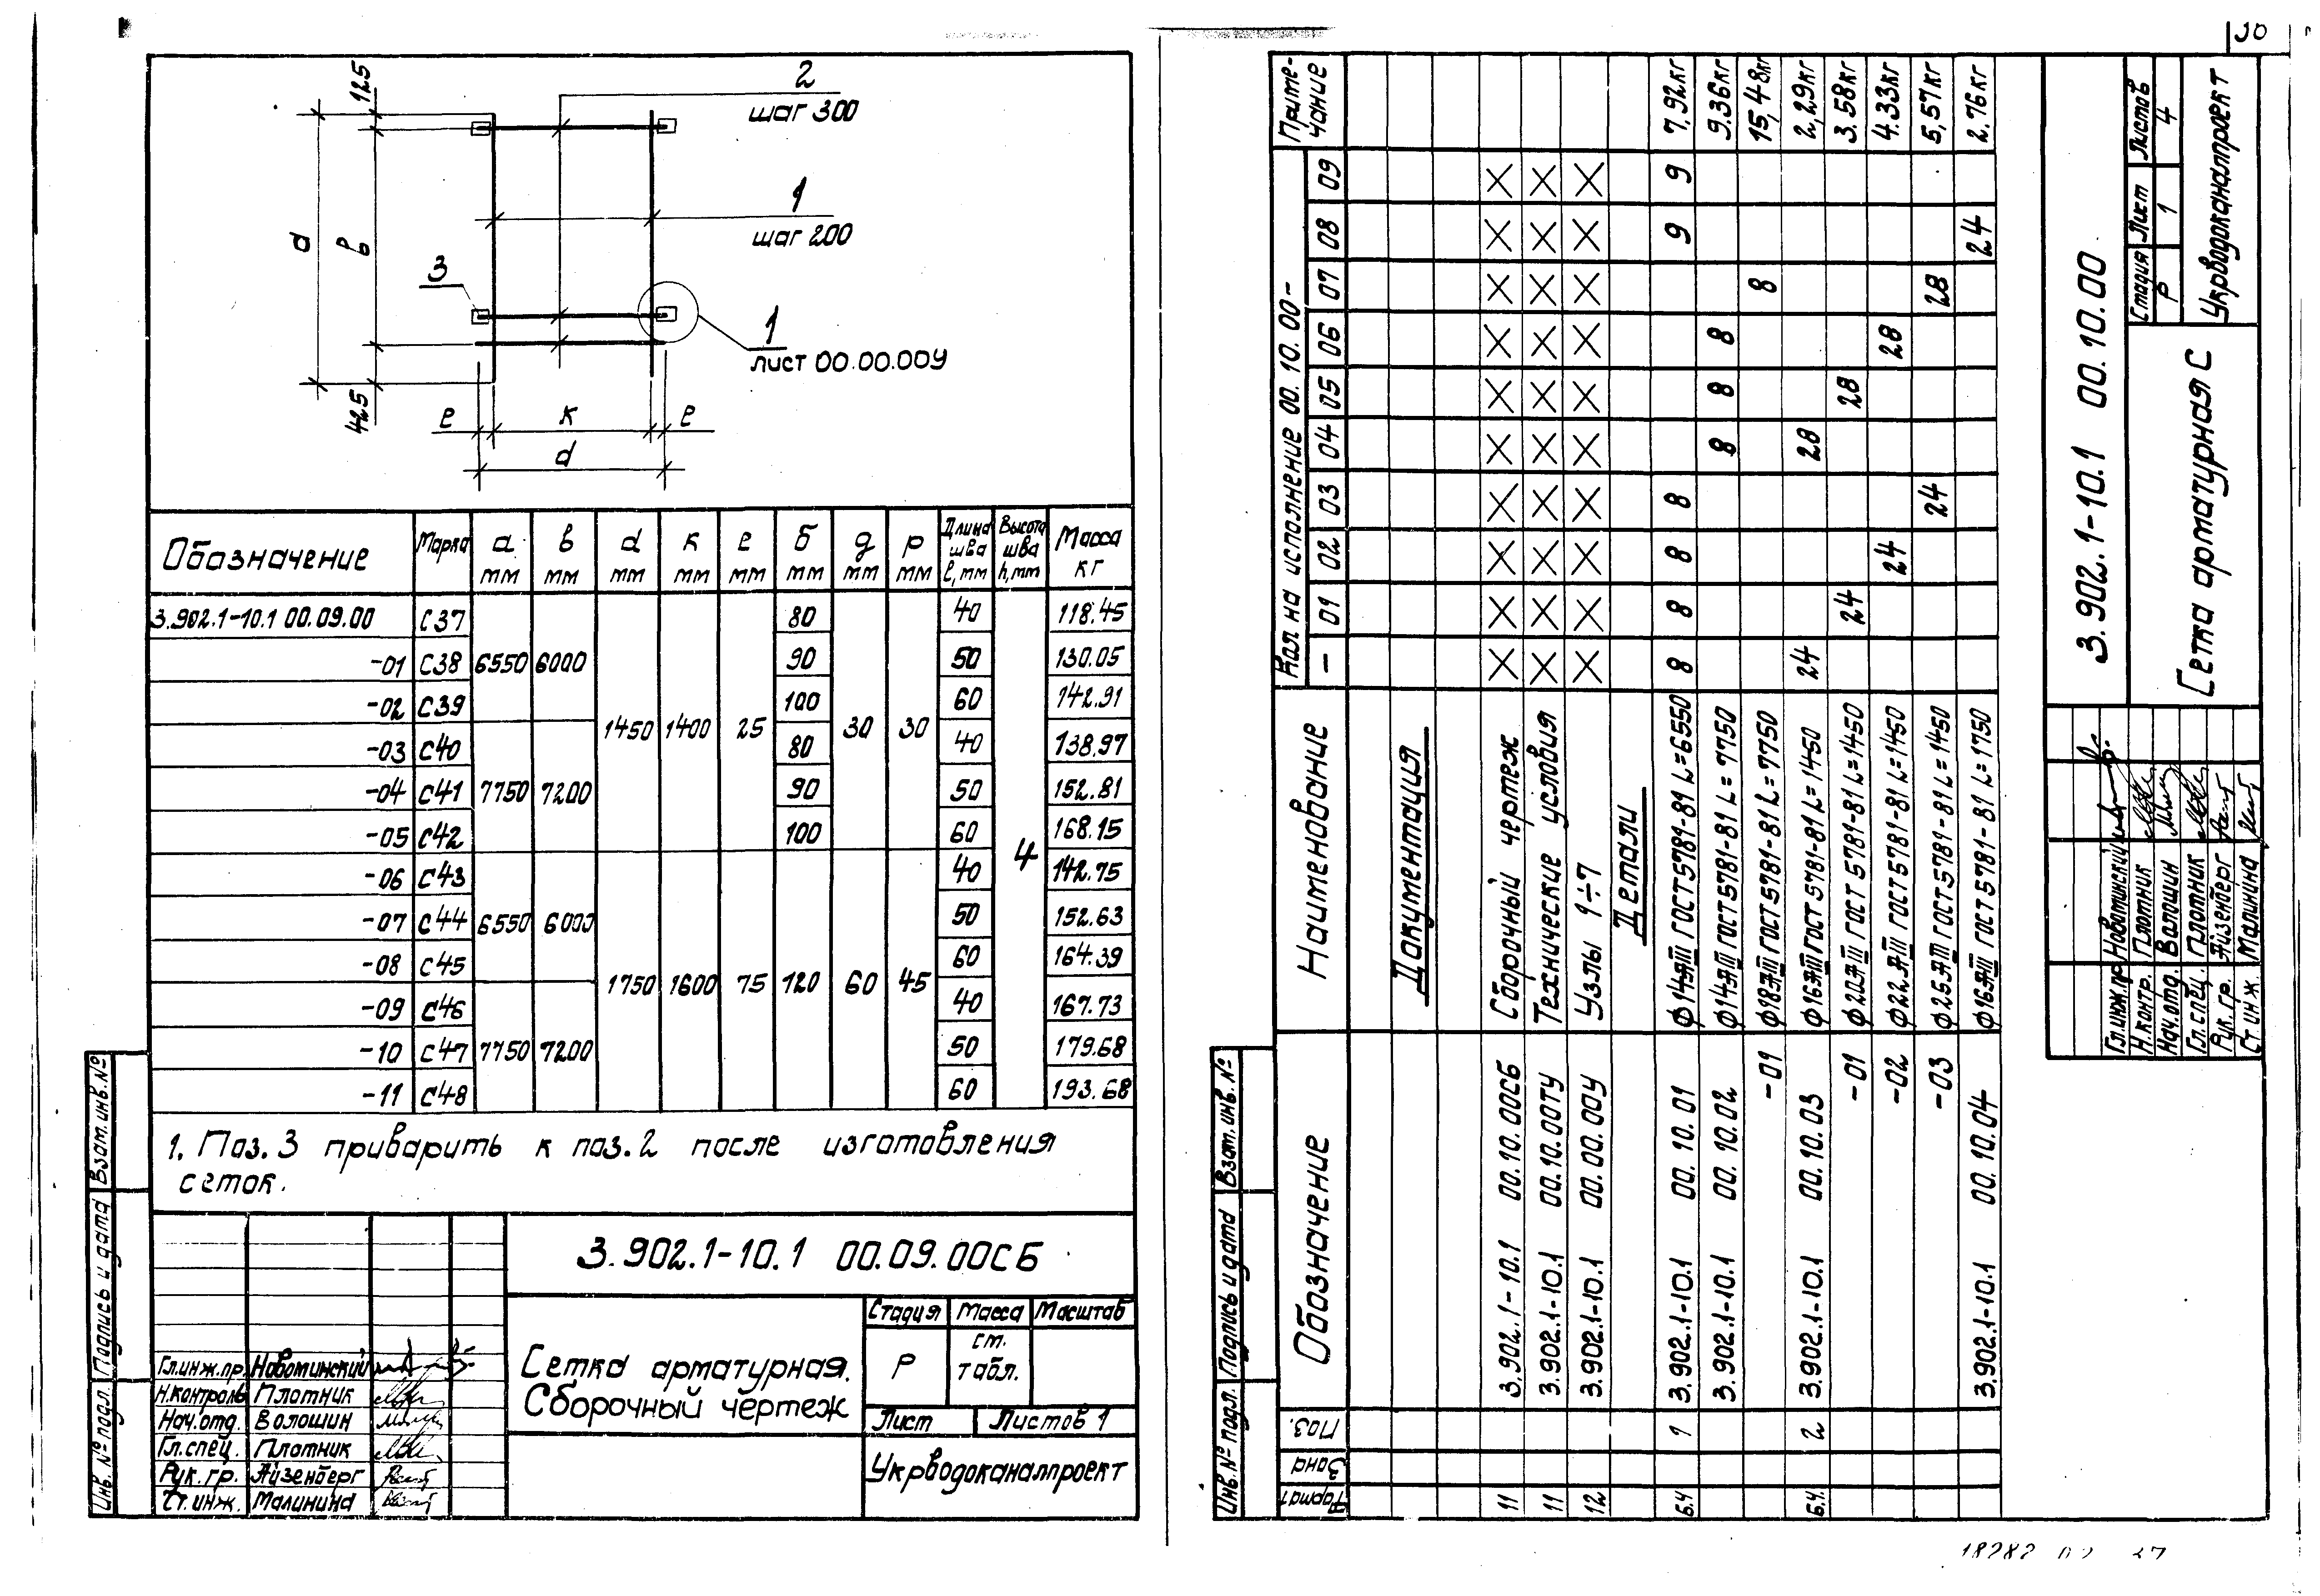 30
125
в
а
425
2
шаг 300
1
шаг 200
3
1
лист 00.00.00У
е к е
d
Обозначение Марка а мм в мм d мм к мм е мм б мм д мм р мм Длина шва ℓ, мм Высота шва h, мм Масса кг
3.902.1-10.1 00.09.00 С37 6550 6000 1450 1400 25 80 30 30 40 4 118.45
-01 С38 90 50 130.05
-02 С39 100 60 142.91
-03 С40 7750 7200 80 40 138.97
-04 С41 90 50 152.81
-05 С42 100 60 168.15
-06 С43 6550 6000 1750 1600 75 120 60 45 40 142.75
-07 С44 50 152.63
-08 С45 60 164.39
-09 С46 7750 7200 40 167.73
-10 С47 50 179.68
-11 С48 60 193.68
1. Поз. 3 приварить к поз. 2 после изготовления
сеток.
3.902.1-10.1 00.09.00СБ
Сетка арматурная.
Сборочный чертеж
Стадия Масса Масштаб
Р см. табл.
Лист Листов 1
Укрводоканалпроект
Гл.инж.пр. Новотинский
Н.контроль Плотник
Нач.отд. Волошин
Гл.спец. Плотник
Рук.гр. Айзенберг
Ст.инж. Малинина
Инв. № подл. Подпись и дата Взам. инв. №
Формат Зона Поз. Обозначение Наименование Кол. на исполнение 00.10.00- Примечание
- 01 02 03 04 05 06 07 08 09
Документация
11 3.902.1-10.1 00.10.00СБ Сборочный чертеж Х Х Х Х Х Х Х Х Х Х
11 3.902.1-10.1 00.10.00ТУ Технические условия Х Х Х Х Х Х Х Х Х Х
12 3.902.1-10.1 00.00.00У Узлы 1÷7 Х Х Х Х Х Х Х Х Х Х
Детали
Б.Ч 1 3.902.1-10.1 00.10.01 Ф14АIII ГОСТ5781-81 L=6550 8 8 8 8 9 9 7,92кг
3.902.1-10.1 00.10.02 Ф14АIII ГОСТ5781-81 L=7750 8 8 8 9.36кг
-01 Ф18АIII ГОСТ5781-81 L=7750 8 15,48кг
Б.Ч. 2 3.902.1-10.1 00.10.03 Ф16АIII ГОСТ5781-81 L=1450 24 28 2,29кг
-01 Ф20АIII ГОСТ5781-81 L=1450 24 28 3.58кг
-02 Ф22АIII ГОСТ5781-81 L=1450 24 28 4.33кг
-03 Ф25АIII ГОСТ5781-81 L=1450 24 28 5,57кг
3.902.1-10.1 00.10.04 Ф16АIII ГОСТ5781-81 L=1750 24 2.76кг
3.902.1-10.1 00.10.00
Сетка арматурная С
Стадия Лист Листов
Р 1 4
Укрводоканалпроект
Гл.инж.пр. Новотинский
Н.контр. Плотник
Нач.отд. Волошин
Гл.спец. Плотник
Рук.гр. Айзенберг
Ст.инж. Малинина
Инв. № подл. Подпись и дата Взам. инв. №
18282 02 37